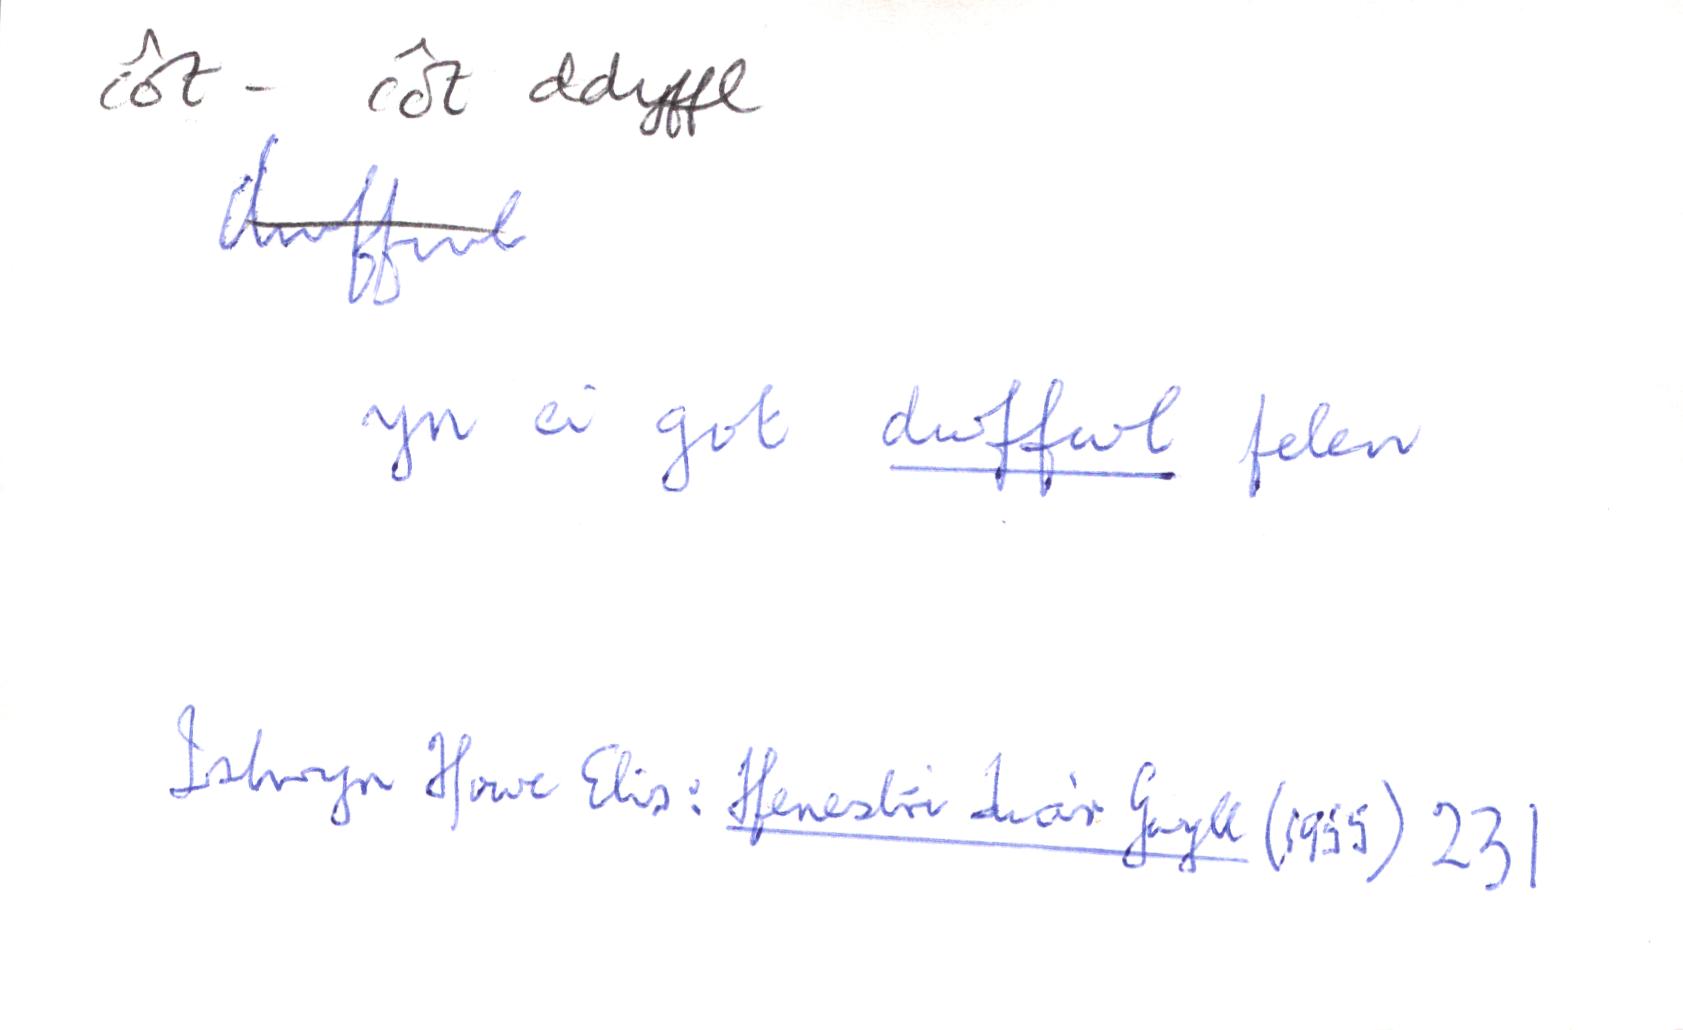 côt - côt ddyffl
dwffwl
yn ei got dwffwl felen
Islwyn Ffowc Elis: Ffenestri Tua'r Gwyll (1955) 231